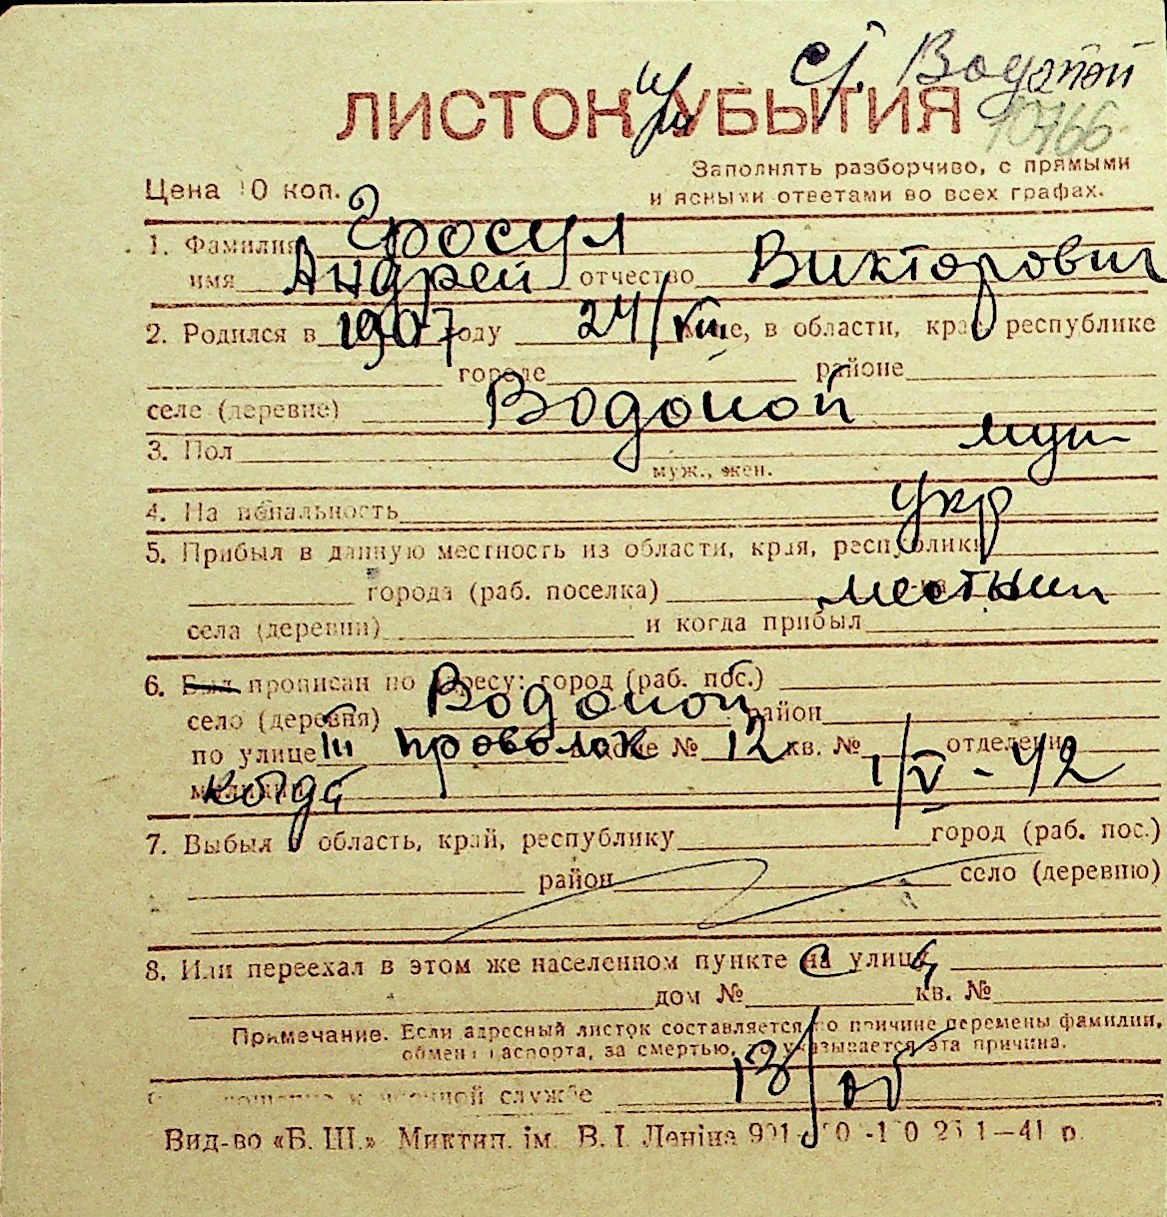 с. Водопой
ЛИСТОК УБЫТИЯ
10766
Заполнять разборчиво, с прямыми
Цена 10 коп.
и ясными ответами во всех графах.
1. Фамилия Гросул
имя Андрей отчество Викторович
2. Родился в 1907 году 24/VIII м-це, в области, крае, республике
городе районе
селе (деревне) Водопой
3. Пол муж
муж., жен.
4. Национальность укр
5. Прибыл в данную местность из области, края, республики
города (раб. поселка) местный
села (деревни) и когда прибыл
6. Был прописан по адресу: город (раб. пос.)
село (деревня) Водопой район
по улице III проволок дом № 12 кв. № отделение
милиции когда 1/V - 42
7. Выбыл в область, край, республику город (раб. пос.)
район село (деревню)
8. Или переехал в этом же населенном пункте на улицу
дом № кв. №
Примечание. Если адресный листок составляется по причине перемены фамилии,
обмена паспорта, за смертью, то указывается эта причина.
13/
отношение к военной службе
Вид-во «Б. Ш.» Миктип. ім. В. І. Леніна